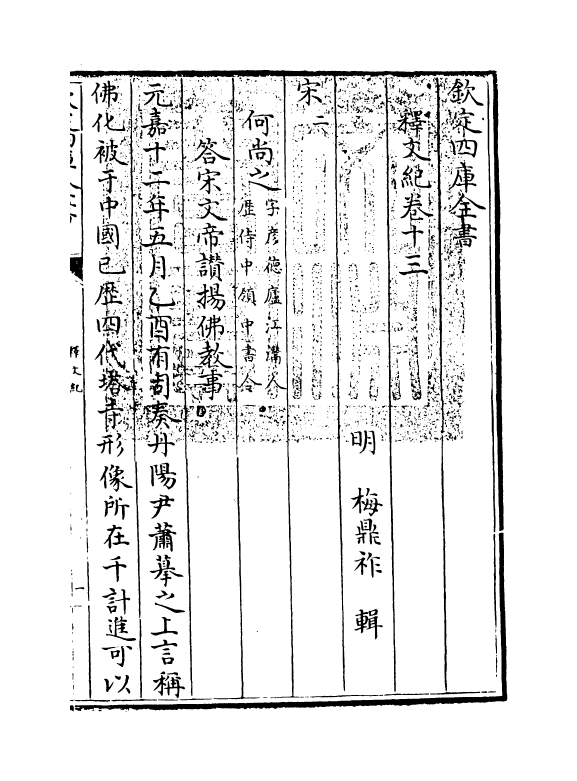 欽定四庫全書
釋文紀卷十三
明 梅鼎祚 輯
宋二
何尚之字彦德廬江灊人
歴侍中領中書令
答宋文帝讃揚佛教事
元嘉十二年五月乙酉有司奏丹陽尹蕭摹之上言稱
佛化被于中國已歴四代塔寺形像所在千計進可以
釋文紀
一